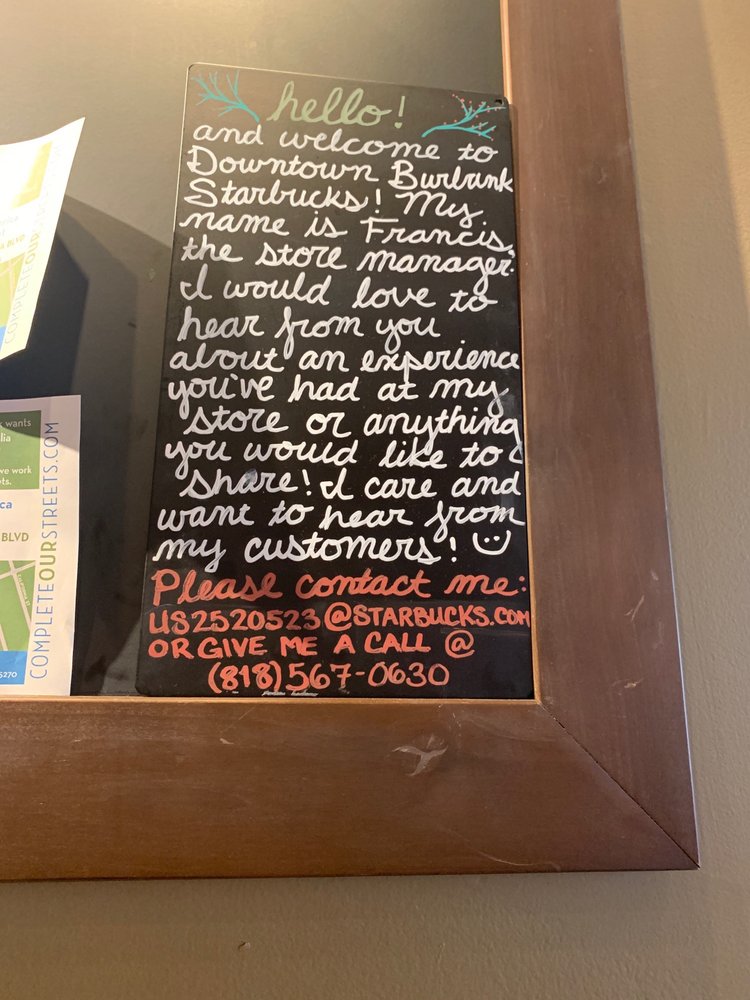 hello!
and welcome to
Downtown Burbank
Starbucks! My
name is Francis,
the store manager.
I would love to
hear from you
about an experience
you've had at my
store or anything
you would like to
share! I care and
want to hear from
my customers!
Please contact me:
US2520523@STARBUCKS.COM
OR GIVE ME A CALL @
(818)567-0630
BLVD
COMPLETEOUR
wants
lia
we work
ets.
ca
BLVD
COMPLETEOURSTREETS.COM
5270